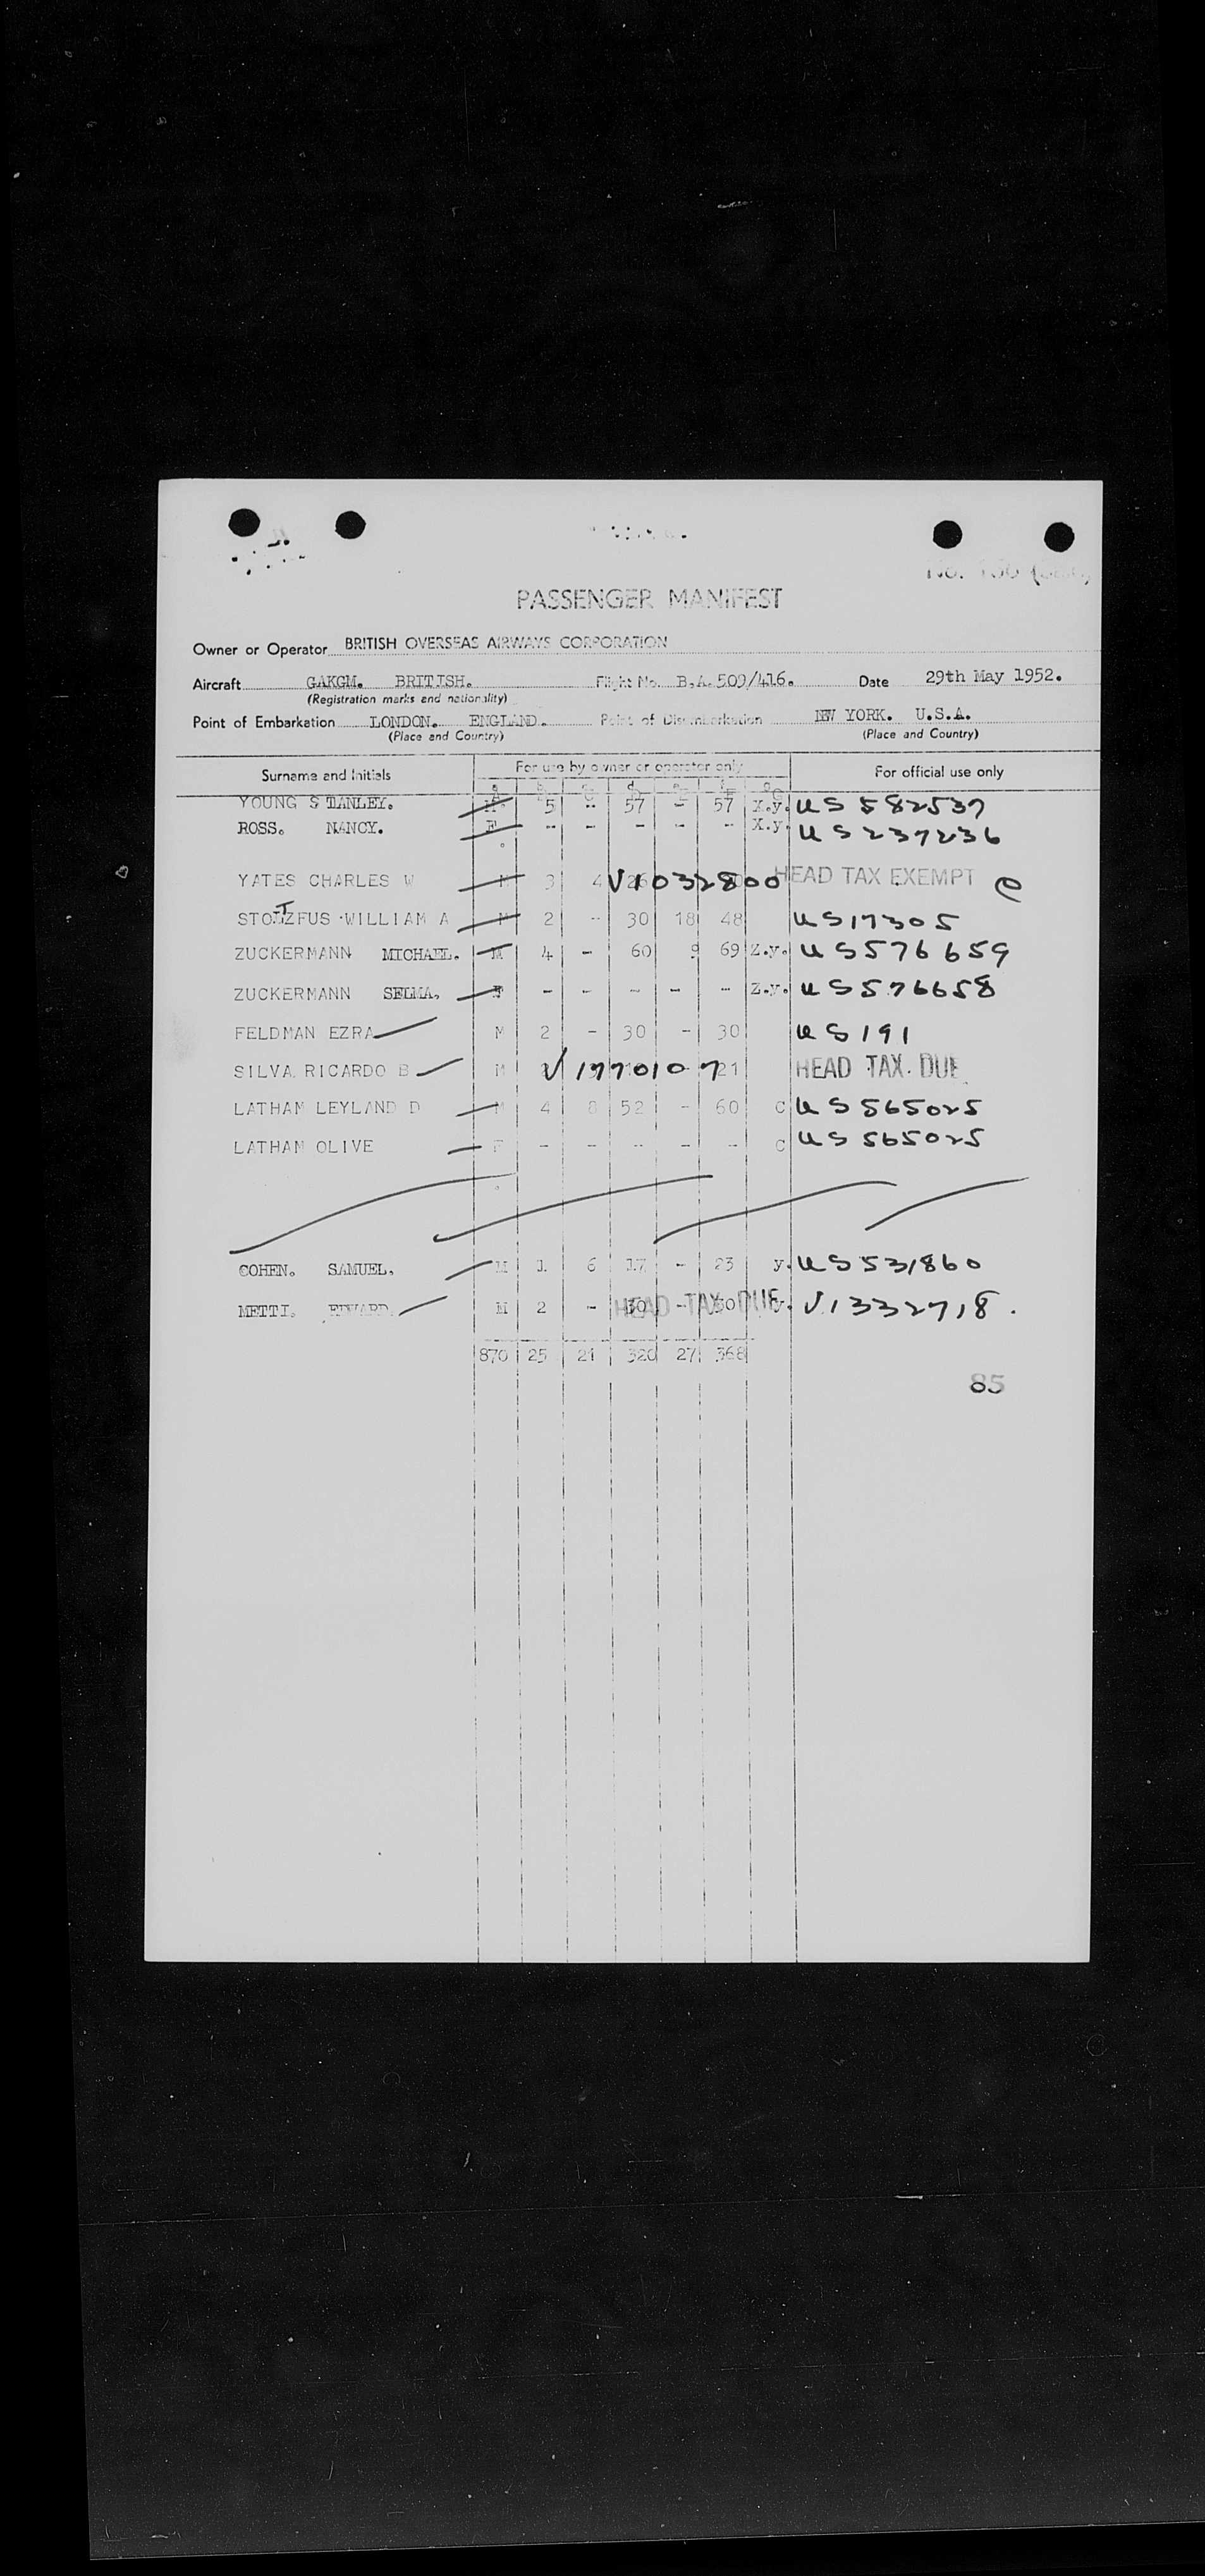 PASSENGER MANIFEST
Owner or Operator BRITISH OVERSEAS AIRWAYS CORPORATION
Aircraft GAKGM. BRITISH. Flight No. B.A. 509/416. Date 29th May 1952.
(Registration marks and nationality)
Point of Embarkation LONDON. ENGLAND. Point of Disembarkation NEW YORK. U.S.A.
(Place and Country) (Place and Country)
Surname and Initials For use by owner or operator only For official use only
YOUNG STANLEY. M 5 - 57 - 57 X.y. US 582537
ROSS. NANCY. F - - - - - X.y. US 237236
YATES CHARLES W M 3 4 26 V1032800 HEAD TAX EXEMPT
STOLTZFUS WILLIAM A M 2 - 30 18 48 US17305
ZUCKERMANN MICHAEL. M 4 - 60 9 69 Z.y. US576659
ZUCKERMANN SELMA. F - - - - - Z.y. US576658
FELDMAN EZRA M 2 - 30 - 30 US191
SILVA RICARDO B M V1770107 21 HEAD TAX DUE
LATHAM LEYLAND D M 4 8 52 - 60 C US565025
LATHAM OLIVE F - - - - - C US565025
COHEN. SAMUEL. M 1 6 17 - 23 y. US531860
METTI. EDWARD. M 2 - 30 - 30 HEAD TAX DUE V1332718.
870 25 21 320 27 368
85